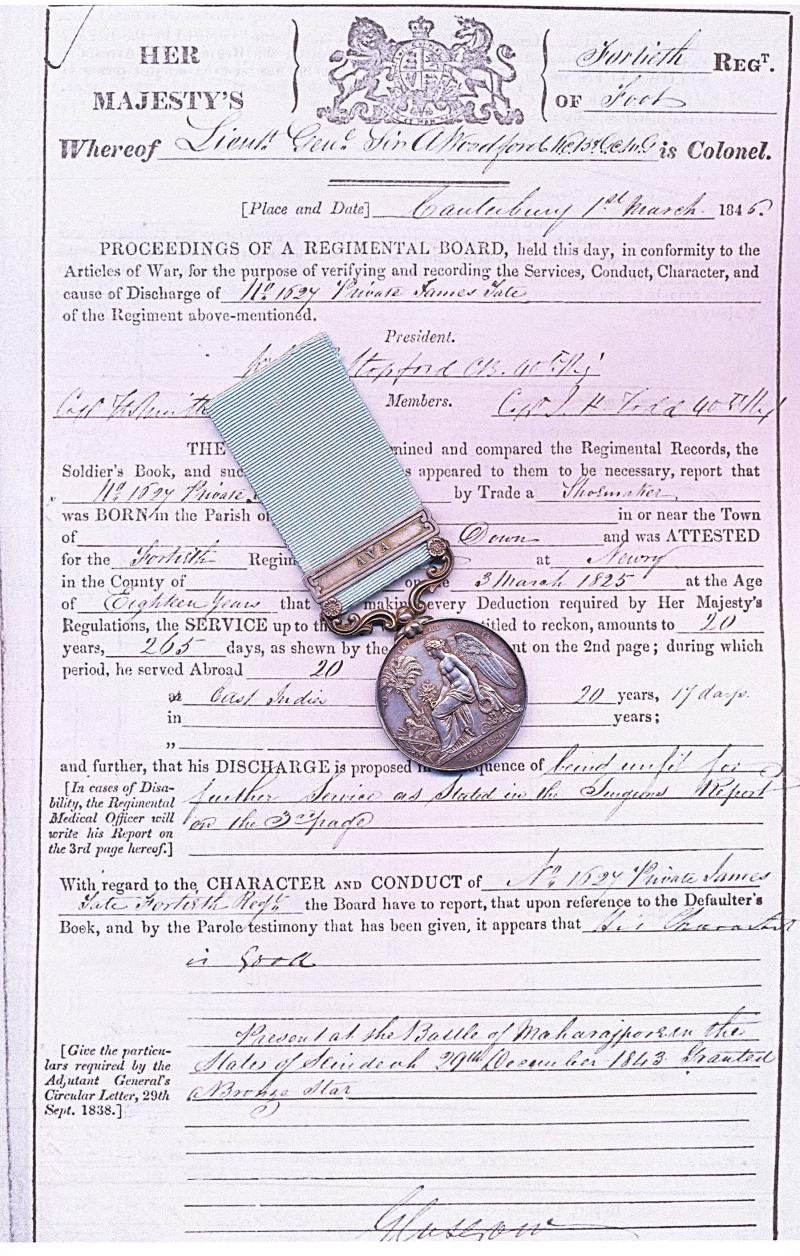 HER
MAJESTY'S
Fortieth REGT.
OF Foot
Whereof Lieut. Genl. Sir A Woodford K.C.B. & G.C.M.G is Colonel.
[Place and Date] Canterbury 1st March 1846.
PROCEEDINGS OF A REGIMENTAL BOARD, held this day, in conformity to the
Articles of War, for the purpose of verifying and recording the Services, Conduct, Character, and
cause of Discharge of No. 1627 Private James Tate
of the Regiment above-mentioned.
President.
Stopford CB. 40th Reg
Capt Members. Capt J. H. Todd 40th Reg
THE mined and compared the Regimental Records, the
Soldier's Book, and suc s appeared to them to be necessary, report that
No. 1627 Private by Trade a Shoemaker
was BORN in the Parish of in or near the Town
of Down and was ATTESTED
for the Fortieth Regim at Newry
in the County of on the 3 March 1825 at the Age
of Eighteen Years that making every Deduction required by Her Majesty's
Regulations, the SERVICE up to th titled to reckon, amounts to 20
years, 265 days, as shewn by the nt on the 2nd page; during which
period, he served Abroad 20
at East Indies 20 years, 17 days.
in years;
„
and further, that his DISCHARGE is proposed in quence of being unfit for
further Service as Stated in the Surgeons Report
on the 3rd page
[In cases of Disa-
bility, the Regimental
Medical Officer will
write his Report on
the 3rd page hereof.]
With regard to the CHARACTER AND CONDUCT of No. 1627 Private James
Tate Fortieth Regt. the Board have to report, that upon reference to the Defaulter's
Book, and by the Parole testimony that has been given, it appears that His Character
is Good
Present at the Battle of Maharajpoor in the
States of Scindeah 29th December 1843 Granted
a Bronze Star
[Give the particu-
lars required by the
Adjutant General's
Circular Letter, 29th
Sept. 1838.]
AVA
1799-1826